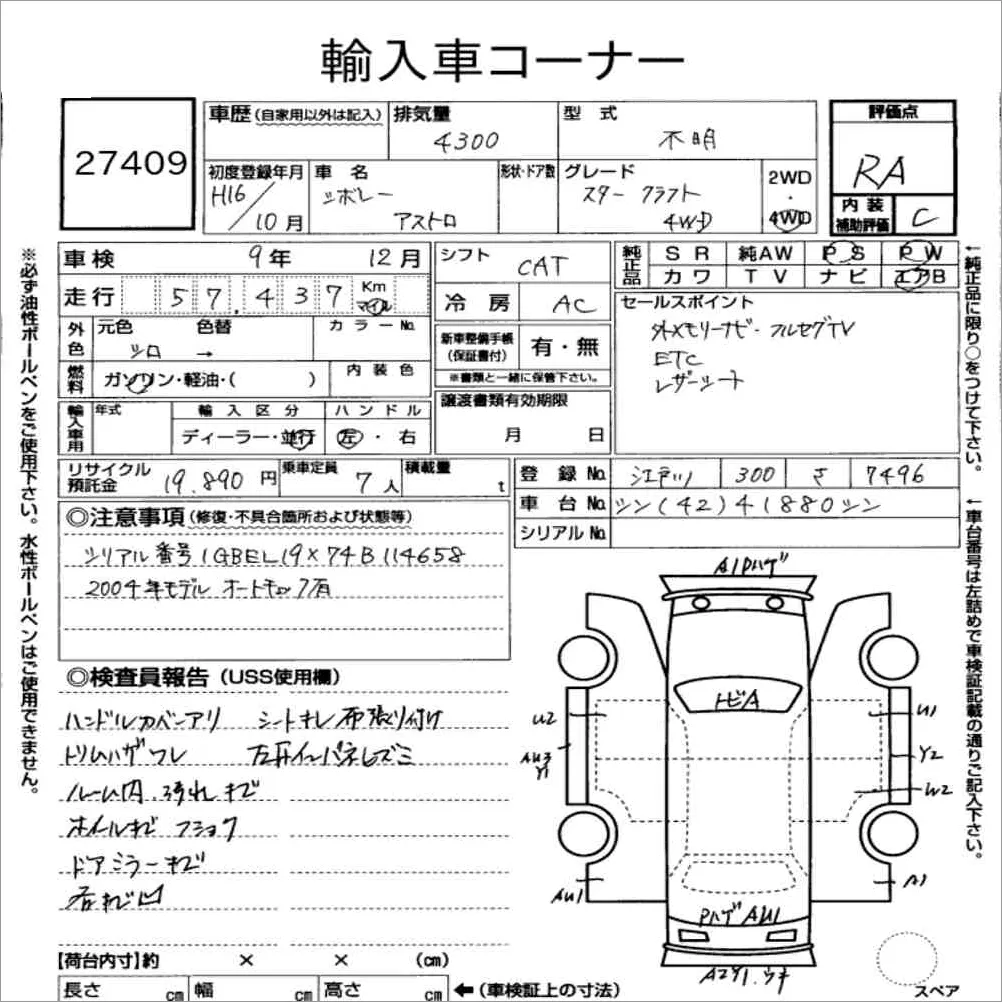 輸入車コーナー
27409
車歴(自家用以外は記入)
排気量
4300
型式
不明
評価点
RA
初度登録年月
H16/10月
車名
シボレー
アストロ
形状・ドア数
グレード
スタークラフト
4WD
2WD
4WD
内装補助評価
C
車検 9年 12月
走行 57,437 Km マイル
外色
元色 シロ
色替 →
カラーNo.
燃料
ガソリン・軽油・( )
内装色
輸入車用
年式
輸入区分
ディーラー・並行
ハンドル
左・右
シフト CAT
冷房 AC
新車整備手帳(保証書付) 有・無
※書類と一緒に保管下さい。
譲渡書類有効期限
月 日
純正品
SR 純AW PS PW
カワ TV ナビ エアB
セールスポイント
外メモリーナビ・フルセグTV
ETC
レザーシート
リサイクル預託金 19,890円
乗車定員 7人
積載量 t
登録No. 江戸川 300 さ 7496
車台No. シン(42)41880シン
シリアルNo.
◎注意事項(修復・不具合箇所および状態等)
シリアル番号1GBEL19X74B114658
2004年モデル オートチェック有
◎検査員報告(USS使用欄)
ハンドルカバーアリ シートキレ布張り付け
トリムハガワレ
ルーム内 汚れキズ
ホイールキズ フショク
ドアミラーキズ
各キズ凹
A1Pハゲ
トビA
U2
AU3
Y1
U1
Y2
W2
AU1
A1
PハゲAU1
A2Y1.ワキ
スペア
【荷台内寸】約 × × (cm)
長さ cm 幅 cm 高さ cm ←(車検証上の寸法)
※必ず油性ボールペンをご使用下さい。水性ボールペンはご使用できません。
←純正品に限り○をつけて下さい。
←車台番号は左詰めで車検証記載の通りご記入下さい。